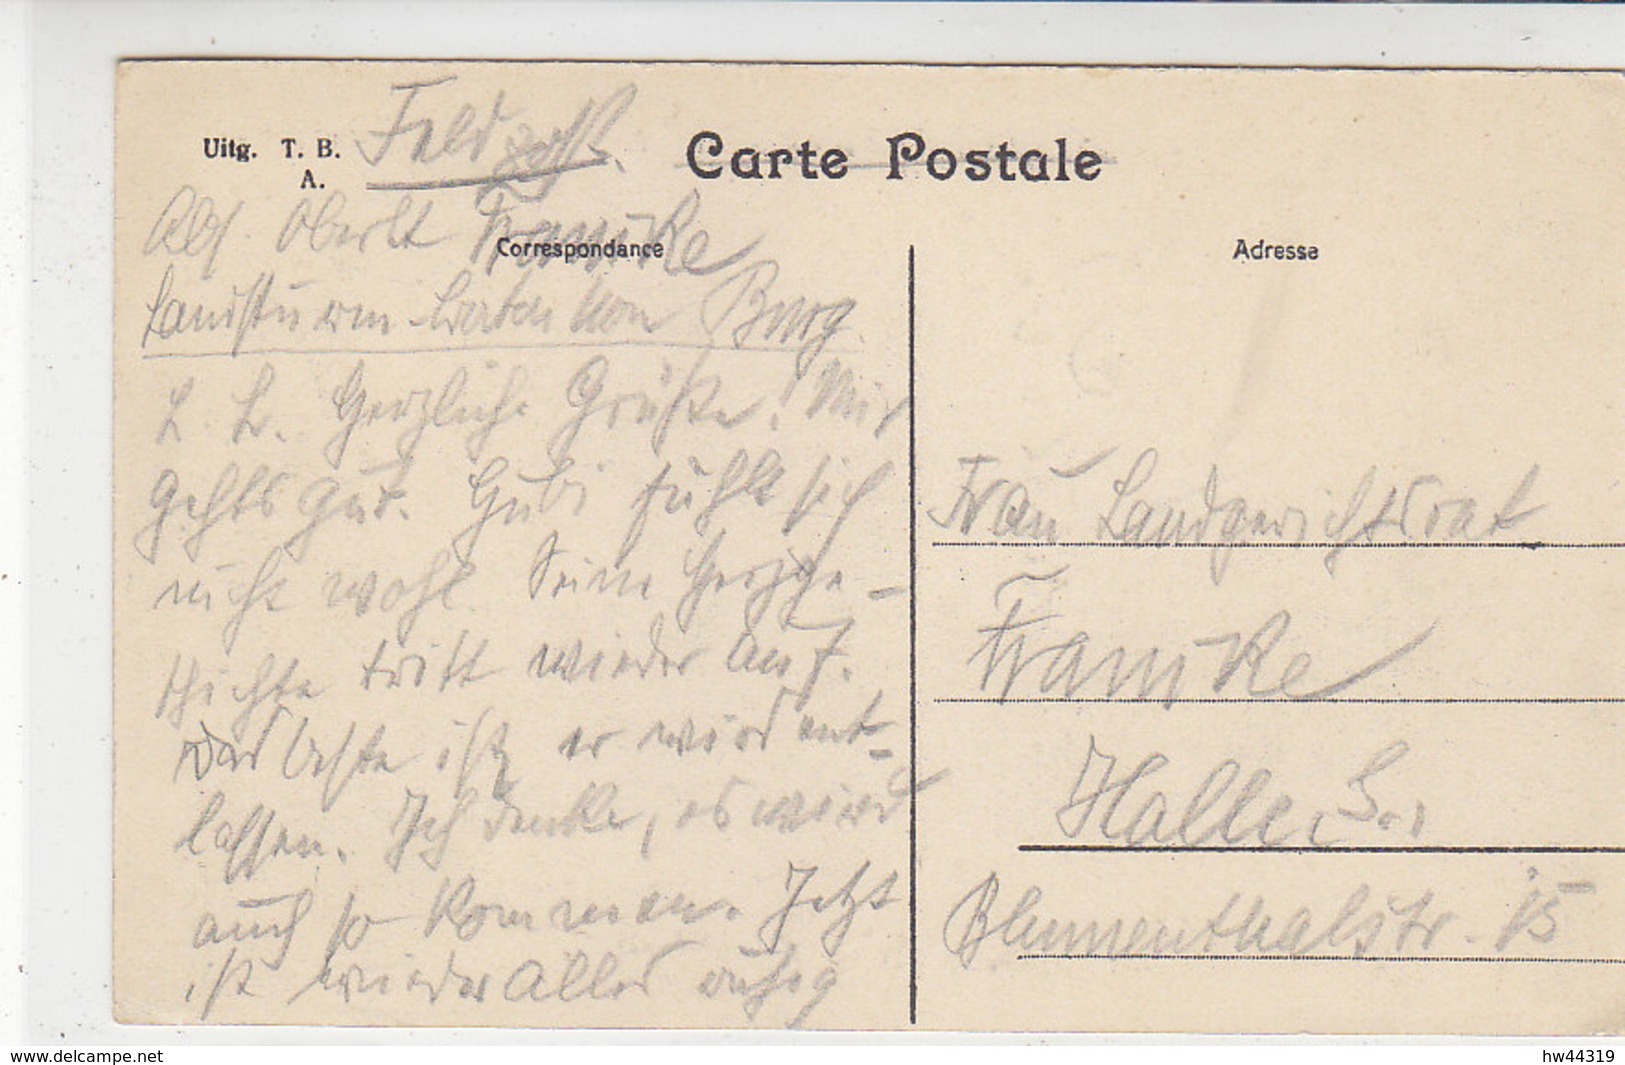 Uitg. T. B.
A.
Feldpost.
Carte Postale
Correspondance
Adresse
Abs. Oberlt Francke
Landsturm-Bataillon Burg.
L. L. Herzliche Grüße! Mir
gehts gut. Hubi fühlt sich
nicht wohl. Seine Herzge-
schichte tritt wieder auf.
Das beste ist, er wird ent-
lassen. Ich denke, es wird
auch so kommen. Jetzt
ist wieder Alles ruhig
Frau Landgerichtsrat
Francke
Halle, S.
Blumenthalstr. 15
delcampe.net
hw44319